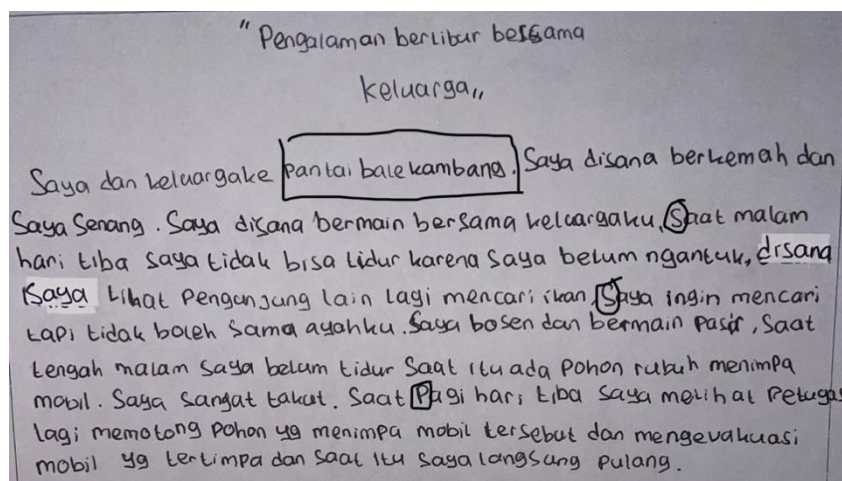 " Pengalaman berlibur bersama
keluarga,,
Saya dan keluargake pantai balekambang. Saya disana berkemah dan
Saya Senang. Saya disana bermain bersama keluargaku, Saat malam
hari tiba saya tidak bisa tidur karena saya belum ngantuk, disana
Saya Lihat Pengunjung lain lagi mencari ikan Saya ingin mencari
tapi tidak boleh sama ayahku. Saya bosen dan bermain Pasir, Saat
tengah malam saya belum tidur Saat itu ada Pohon rubuh menimpa
mobil. Saya Sangat takut. Saat Pagi hari tiba Saya melihat Petugas
lagi memotong Pohon yg menimpa mobil tersebut dan mengevakuasi
mobil yg tertimpa dan saat itu saya langsung pulang.